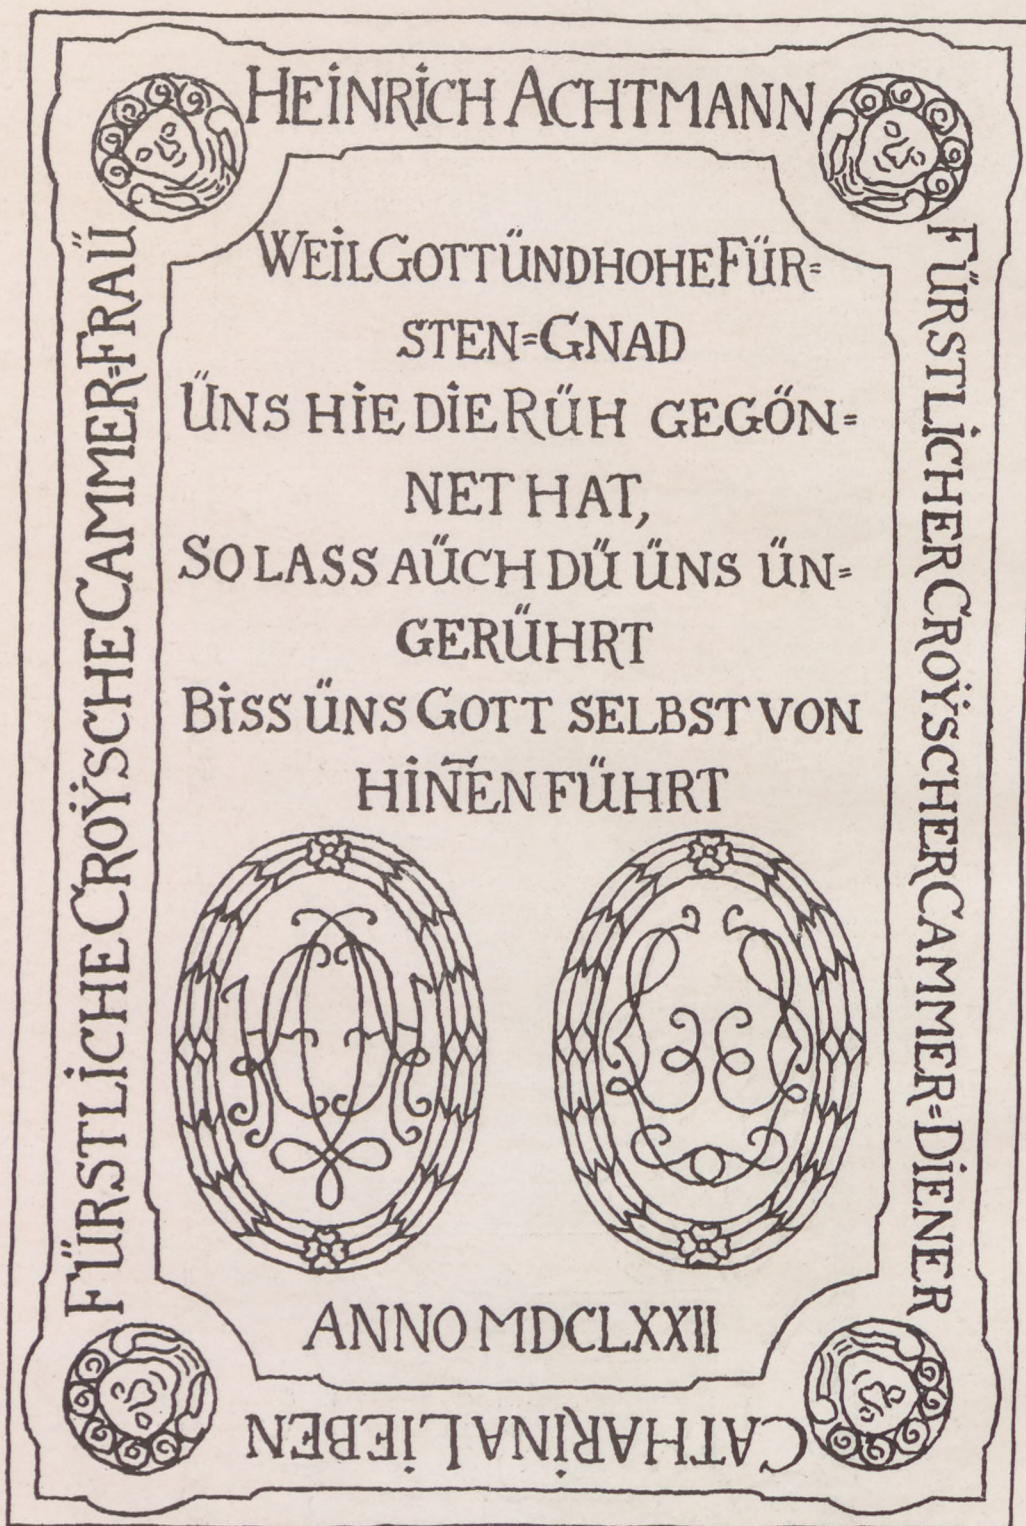 HEINRICH ACHTMANN
FÜRSTLICHER CROŸSCHER CAMMER=DIENER
CATHARINA LIEBEN
FÜRSTLICHE CROŸSCHE CAMMER=FRAÜ
WEIL GOTT ÜND HOHE FÜR=
STEN=GNAD
ÜNS HIE DIE RÜH GEGÖN=
NET HAT,
SO LASS AÜCH DÜ ÜNS ÜN=
GERÜHRT
BISS ÜNS GOTT SELBST VON
HIN̄EN FÜHRT
ANNO MDCLXXII